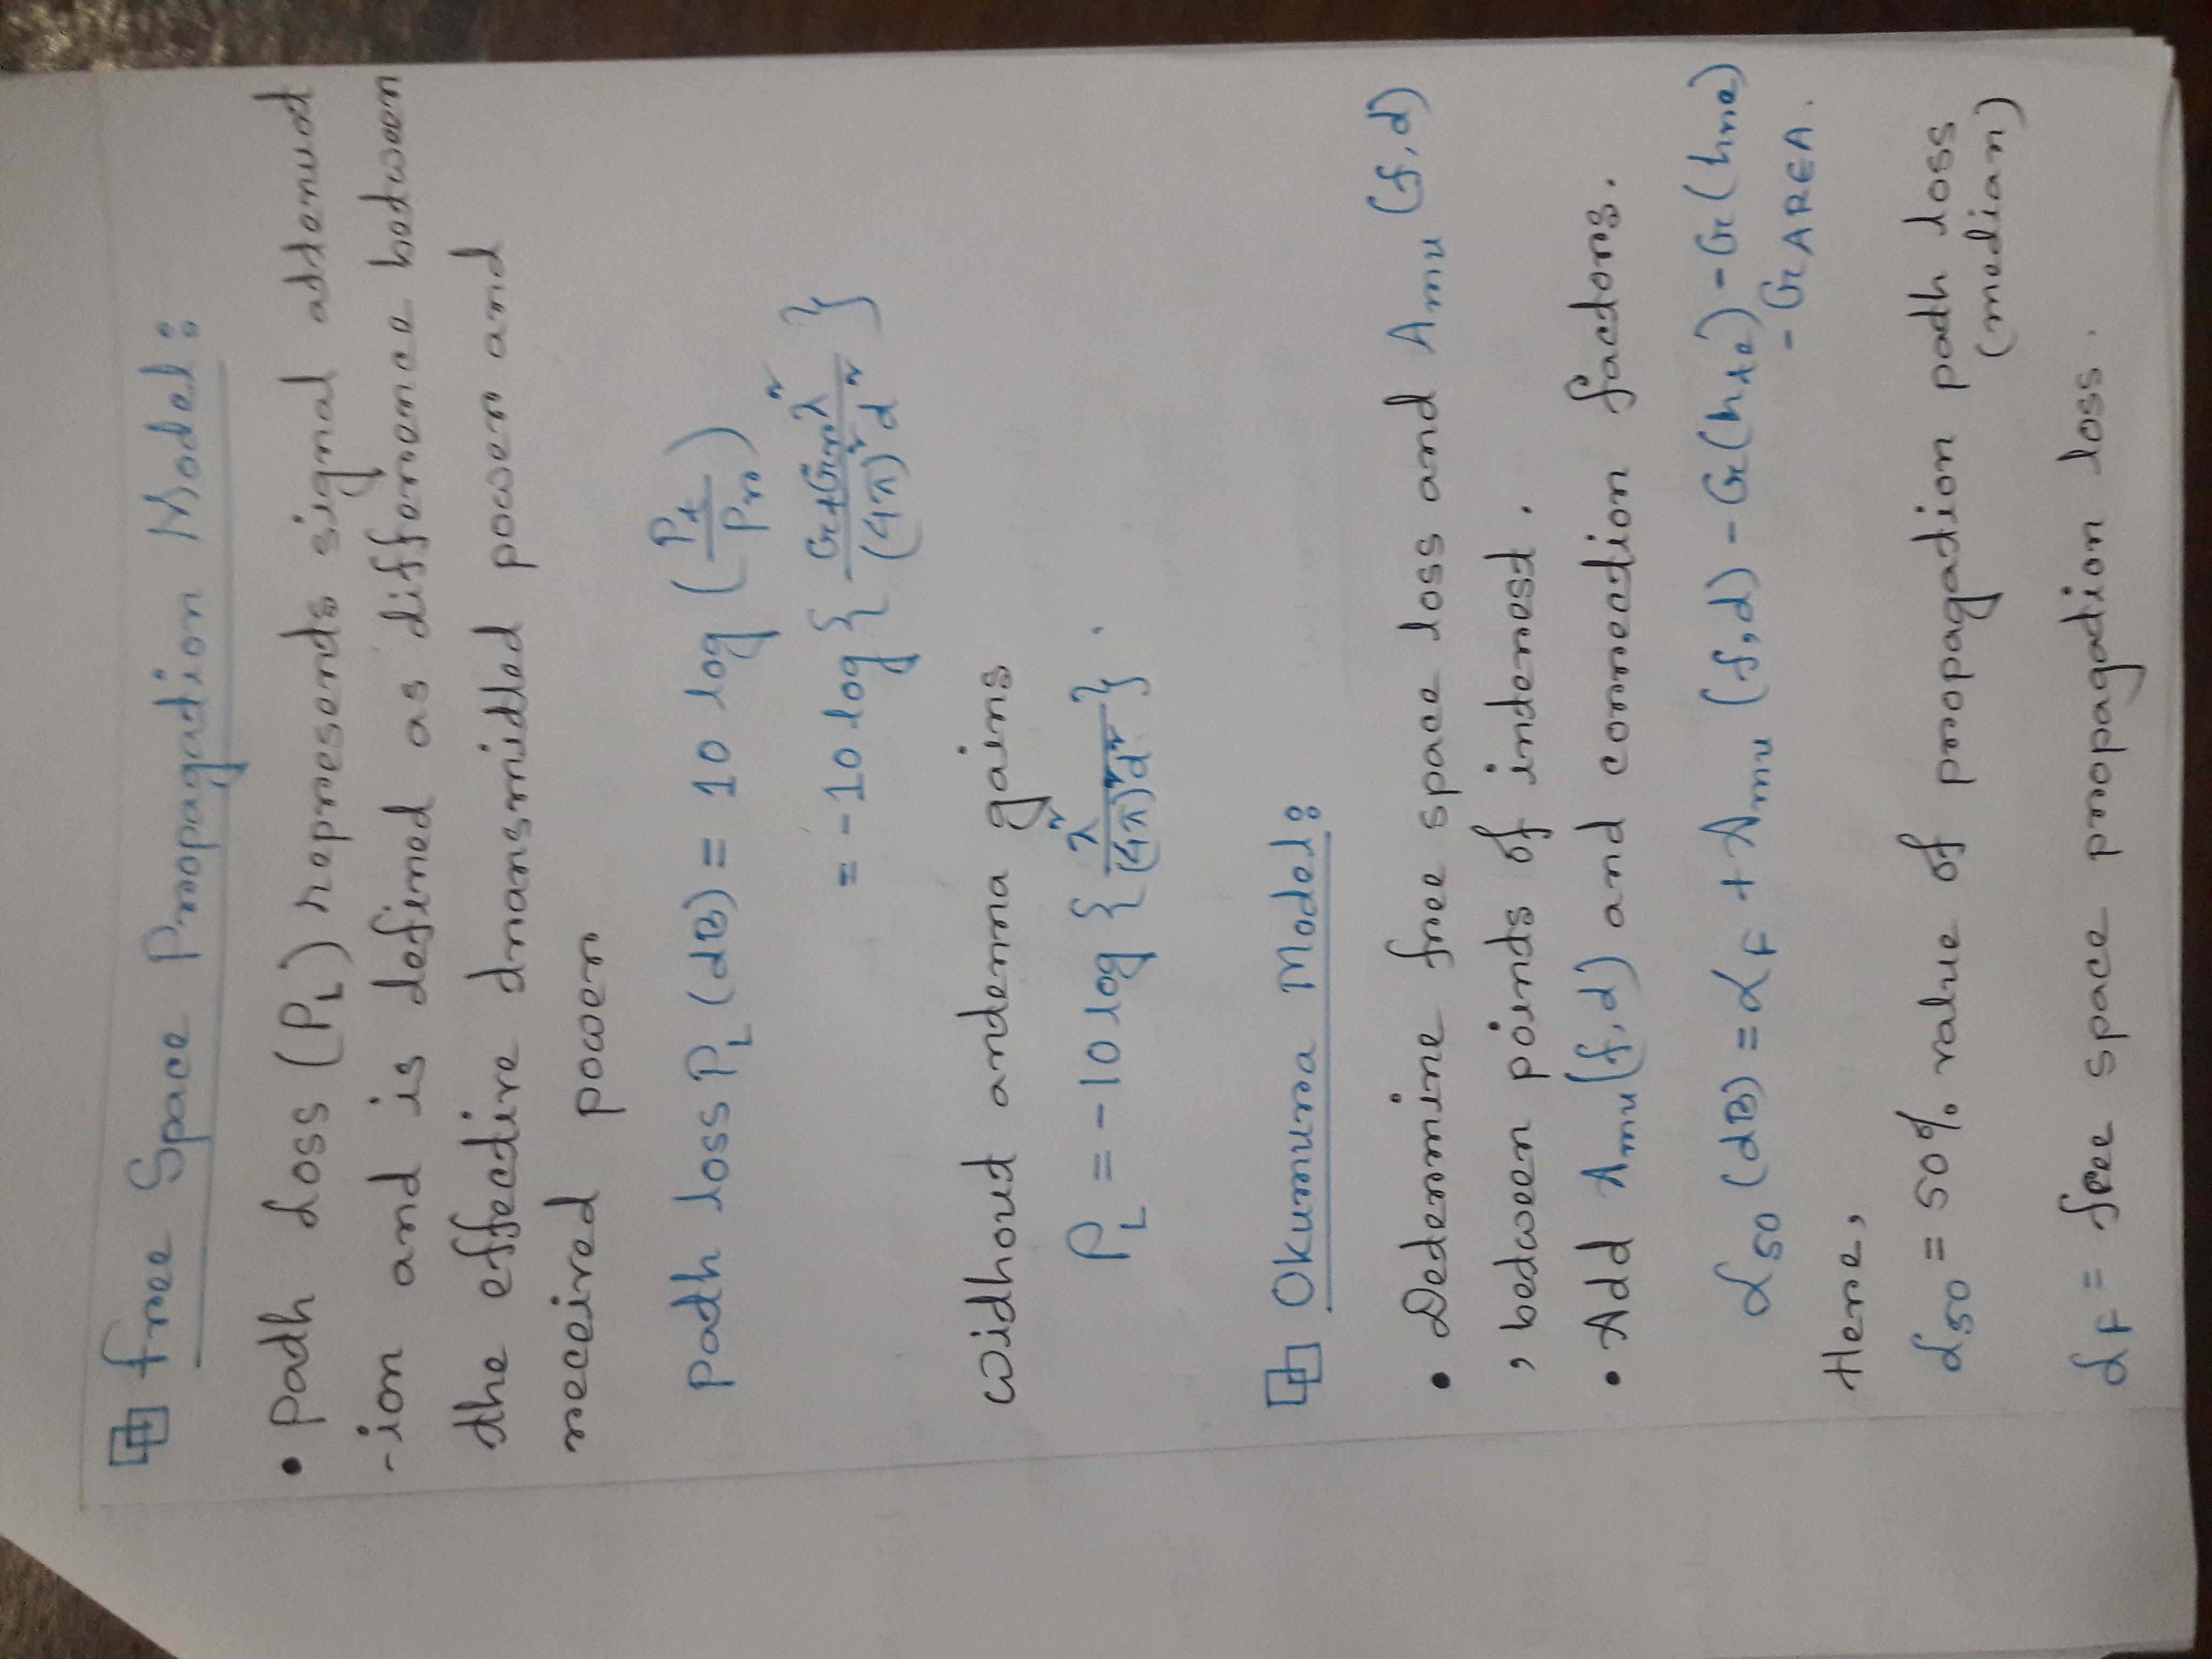 Free Space Propagation Model:
• Path Loss (P_L) represents signal attenuat
-ion and is defined as difference between
the effective transmitted power and
received power
Path loss P_L (dB) = 10 log (P_t / P_r)
= -10 log { G_t G_r λ² / (4π)² d² }
Without antenna gains
P_L = -10 log { λ² / (4π)² d² }
Okumura Model:
• Determine free space loss and A_mu (f, d)
, between points of interest.
• Add A_mu (f, d) and correction factors.
L_50 (dB) = L_F + A_mu (f, d) - G(h_te) - G(h_re)
- G_AREA.
Here,
L_50 = 50% value of propagation path loss
(median)
L_F = free space propagation loss.